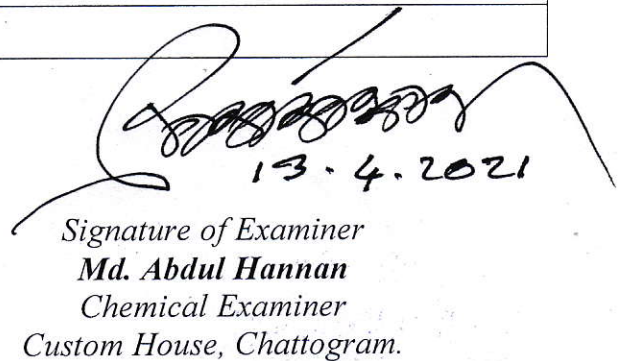 13.4.2021
Signature of Examiner
Md. Abdul Hannan
Chemical Examiner
Custom House, Chattogram.